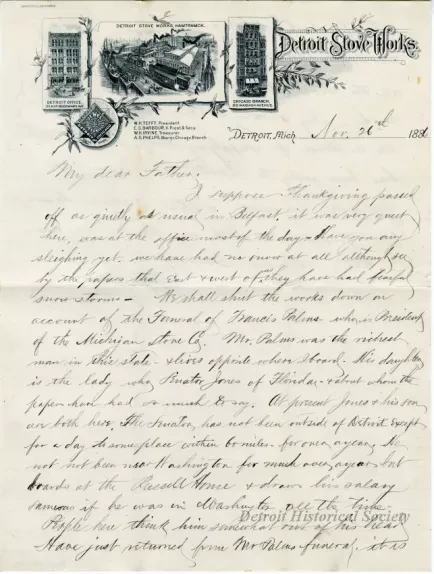 DETROIT STOVE WORKS, HAMTRAMCK.
Detroit Stove Works.
DETROIT OFFICE.
CHICAGO BRANCH.
W.H. TEFFT, President
E.S. BARBOUR, V. Prest & Secy.
W.H. IRVINE, Treasurer
A.G. PHELPS, Mang'r Chicago Branch
DETROIT, Mich Nov. 26th 1886
My dear Father.
I suppose Thanksgiving passed
off as quietly as usual in Belfast. it was very quiet
here, was at the office most of the day. Have you any
sleighing yet. we have had no snow at all although I see
by the papers that East & west of us they have had fearful
snow storms - We shall shut the works down on
account of the Funeral of Francis Palms who is President
of the Michigan Stove Co. Mr. Palms was the richest
man in this state. & lives opposite where I board. His daughter
is the lady who Senator Jones of Florida. & about whom the
papers have had so much to say. At present Jones & his son
are both here. The Senator has not been outside of Detroit except
for a day to someplace within 60 miles. for over a year. he
not not been near Washington for much over a year but
boards at the Russell House & draws his salary
same as if he was in Washington all the time.
People here think him somewhat out of his head
Have just returned from Mr Palms funeral. it is
Detroit Historical Society